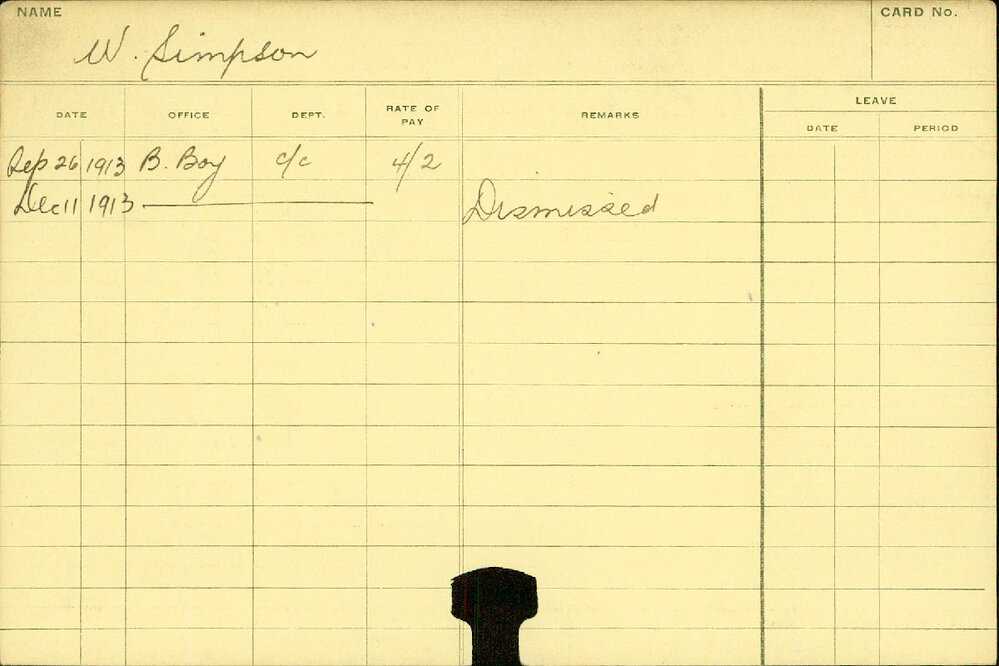 NAME
CARD No.
W. Simpson
DATE OFFICE DEPT. RATE OF PAY REMARKS LEAVE
DATE PERIOD
Sep 26 1913 B. Boy c/c 4/2
Dec 11 1913 Dismissed